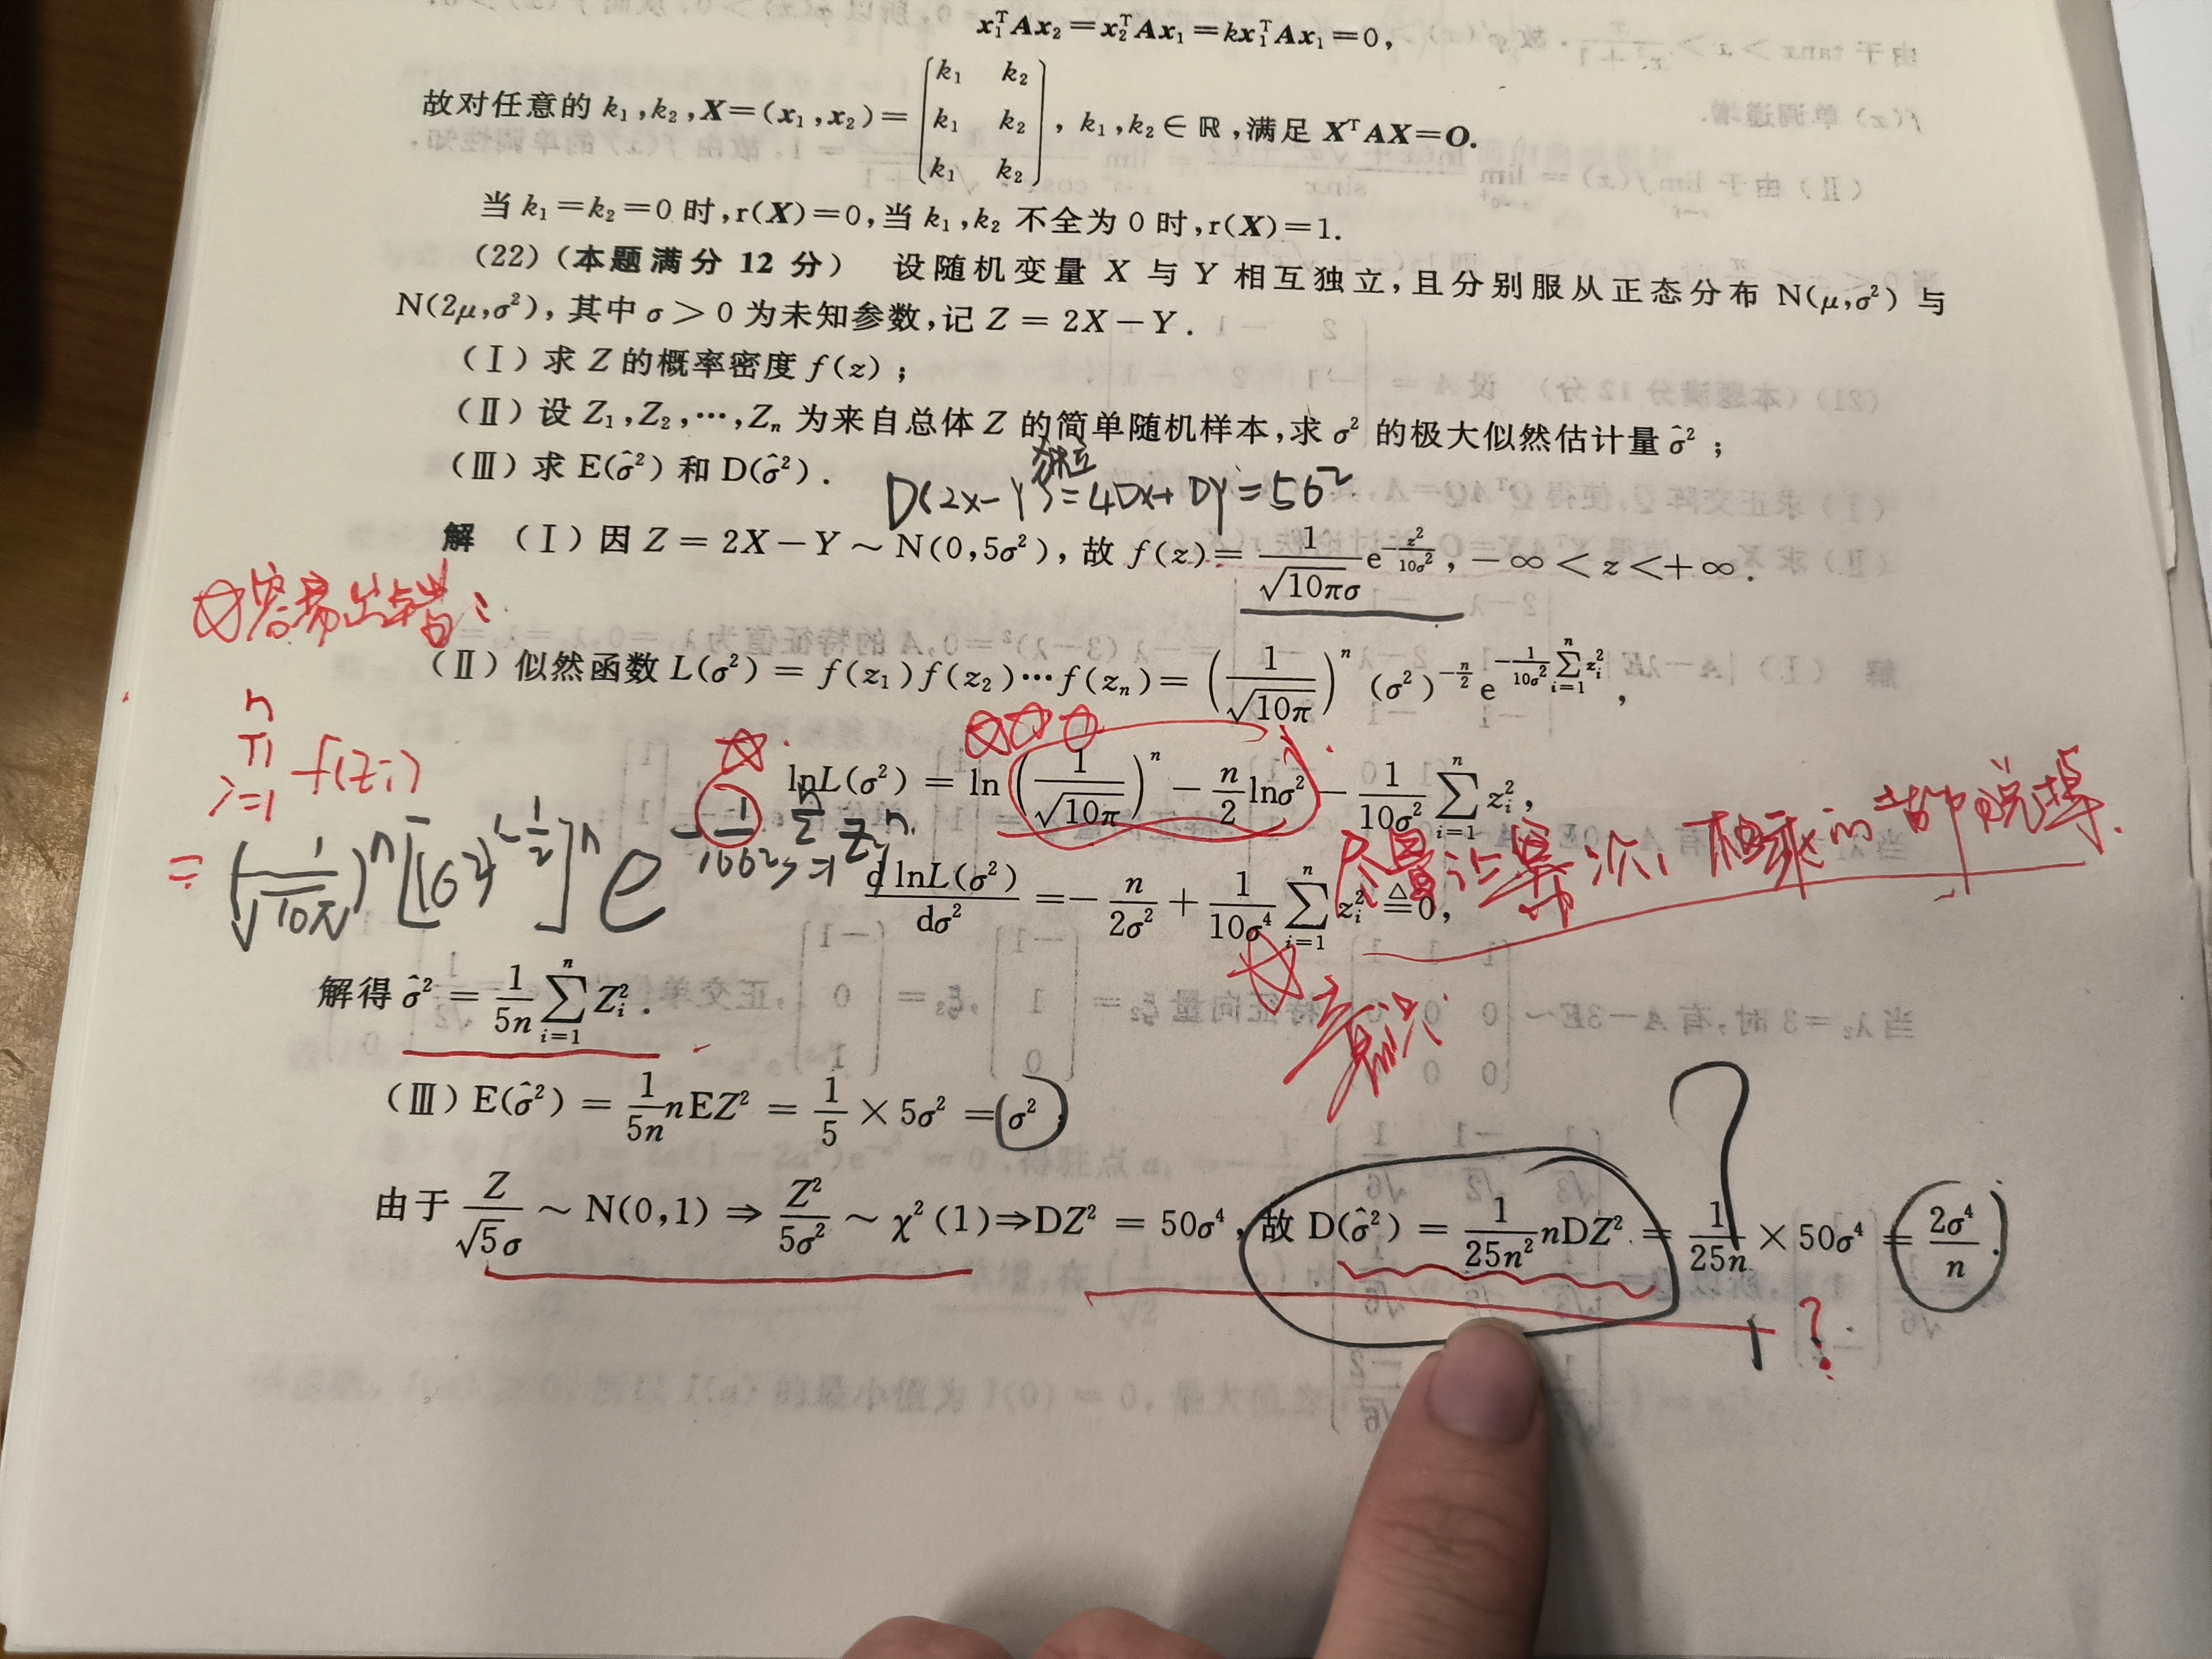 x₁ᵀAx₂=x₂ᵀAx₁=kx₁ᵀAx₁=0,
故对任意的 k₁,k₂,X=(x₁,x₂)=[k₁ k₂; k₁ k₂; k₁ k₂], k₁,k₂∈ℝ,满足 XᵀAX=O.
当 k₁=k₂=0 时,r(X)=0,当 k₁,k₂ 不全为 0 时,r(X)=1.
(22)(本题满分 12 分) 设随机变量 X 与 Y 相互独立,且分别服从正态分布 N(μ,σ²) 与
N(2μ,σ²),其中 σ>0 为未知参数,记 Z=2X-Y.
(Ⅰ)求 Z 的概率密度 f(z);
(Ⅱ)设 Z₁,Z₂,…,Zₙ 为来自总体 Z 的简单随机样本,求 σ² 的极大似然估计量 σ̂²;
(Ⅲ)求 E(σ̂²) 和 D(σ̂²).
独立
D(2X-Y)=4DX+DY=5σ²
解 (Ⅰ)因 Z=2X-Y~N(0,5σ²),故 f(z)=1/(√(10π)σ) e^(-z²/(10σ²)), -∞<z<+∞.
☆容易出错:
(Ⅱ)似然函数 L(σ²)=f(z₁)f(z₂)…f(zₙ)=(1/√(10π))ⁿ (σ²)^(-n/2) e^(-1/(10σ²) ∑ᵢ₌₁ⁿ zᵢ²),
∏ᵢ₌₁ⁿ f(zᵢ)
lnL(σ²)=ln(1/√(10π))ⁿ - n/2 lnσ² - 1/(10σ²) ∑ᵢ₌₁ⁿ zᵢ²,
尽量计算次, 相乘的都脱掉.
=(1/√(10π))ⁿ[(σ²)^(-1/2)]ⁿ e^(-1/(10σ²) ∑ᵢ₌₁ⁿ zᵢ²)
d lnL(σ²)/dσ² = -n/(2σ²) + 1/(10σ⁴) ∑ᵢ₌₁ⁿ zᵢ² ≜ 0,
解得 σ̂²=1/(5n) ∑ᵢ₌₁ⁿ Zᵢ².
(Ⅲ)E(σ̂²)=1/(5n) nEZ²=1/5×5σ²=σ².
由于 Z/(√5σ)~N(0,1)⇒Z²/(5σ²)~χ²(1)⇒DZ²=50σ⁴,故 D(σ̂²)=1/(25n²) nDZ²=1/(25n)×50σ⁴=2σ⁴/n.
?